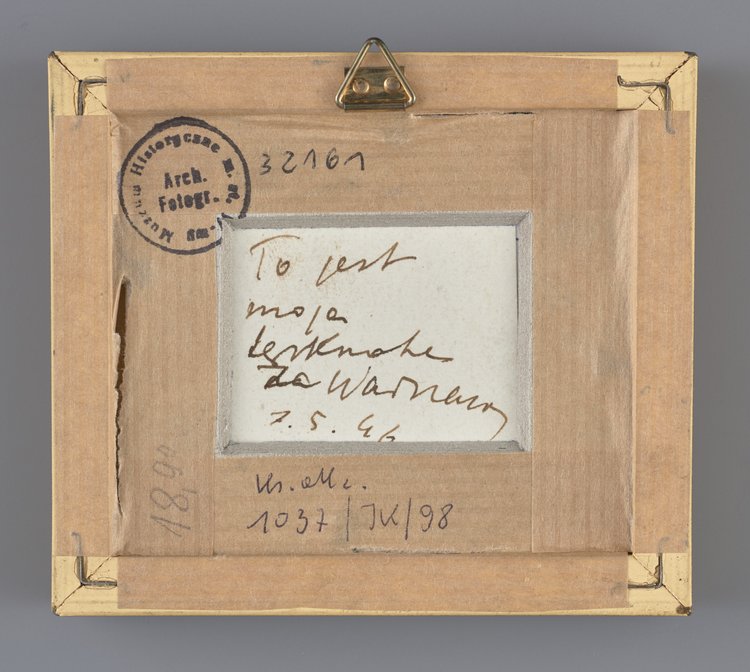 Muzeum Historyczne m. st. W-wy
Arch.
Fotogr.
32161
To jest
moja
tęsknota
za Warszawą
7. 5. 46
18,90
1037/IK/98